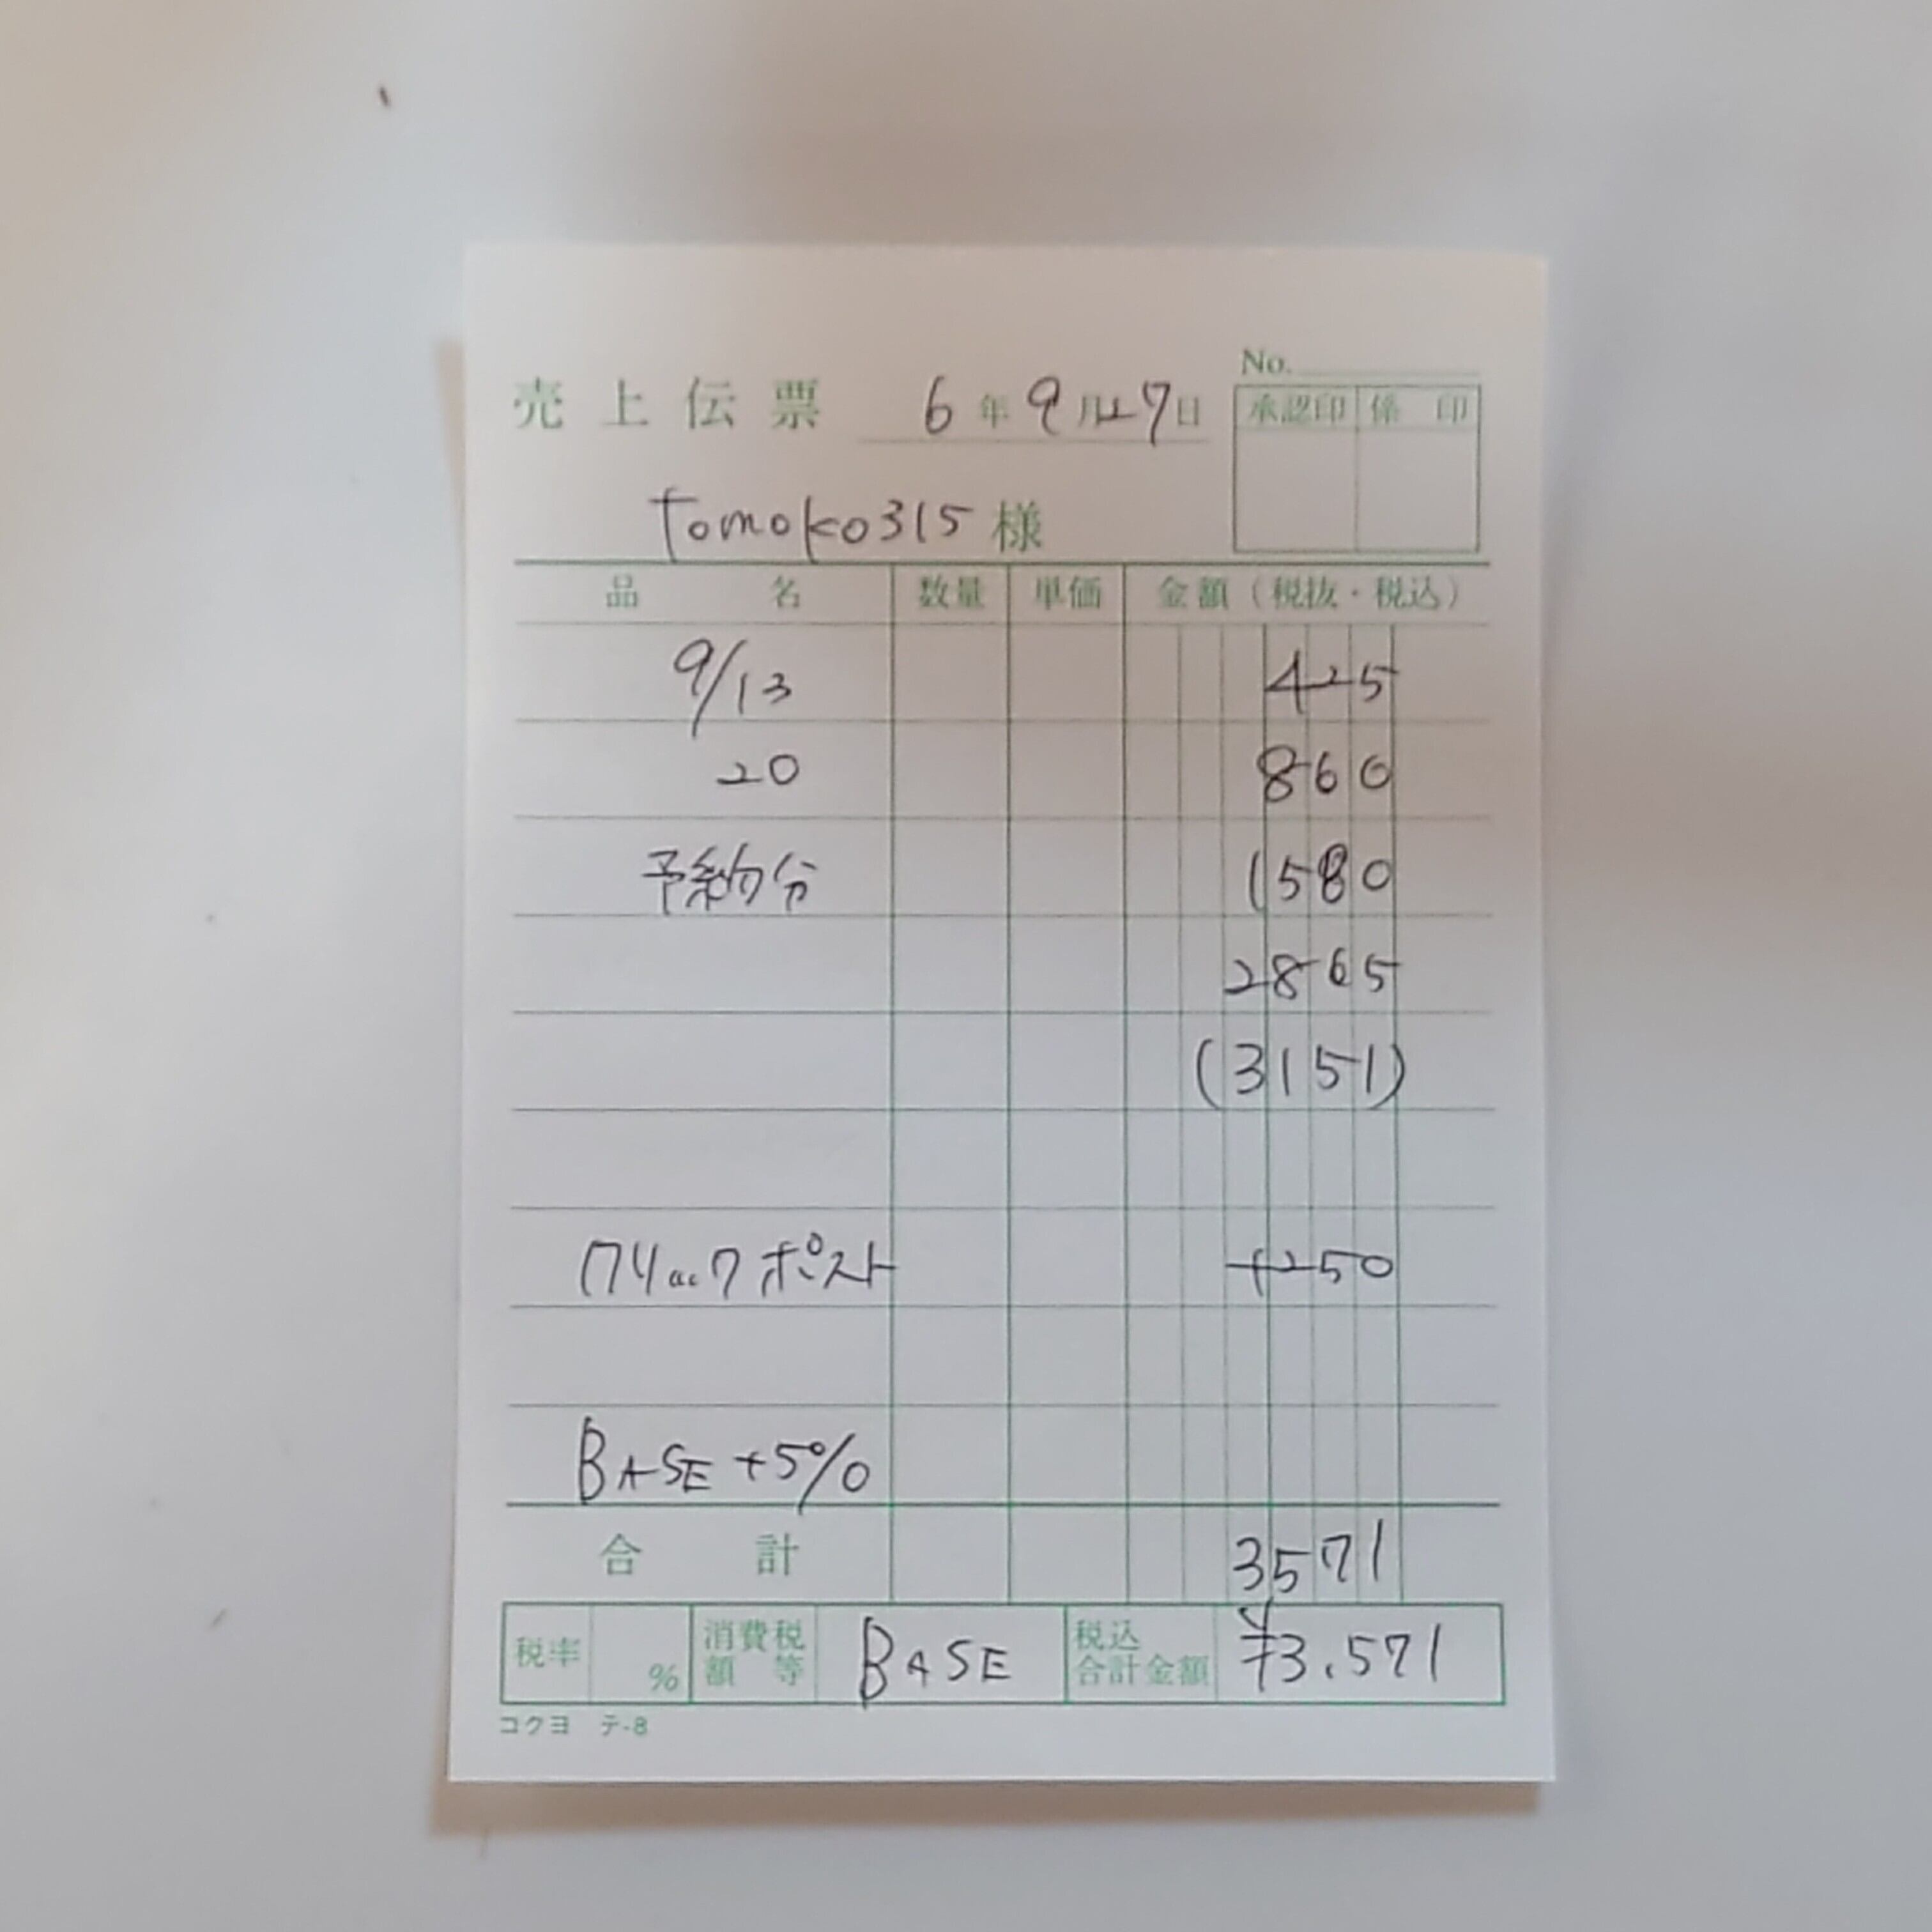 No.
売上伝票 6年9月27日
承認印 係印
tomoko315様
品名 数量 単価 金額(税抜・税込)
9/13 425
20 860
予約分 1580
2865
(3151)
クリックポスト +250
BASE +5%
合計 3571
税率 % 消費税額等 BASE 税込合計金額 ¥3.571
コクヨ テ-8